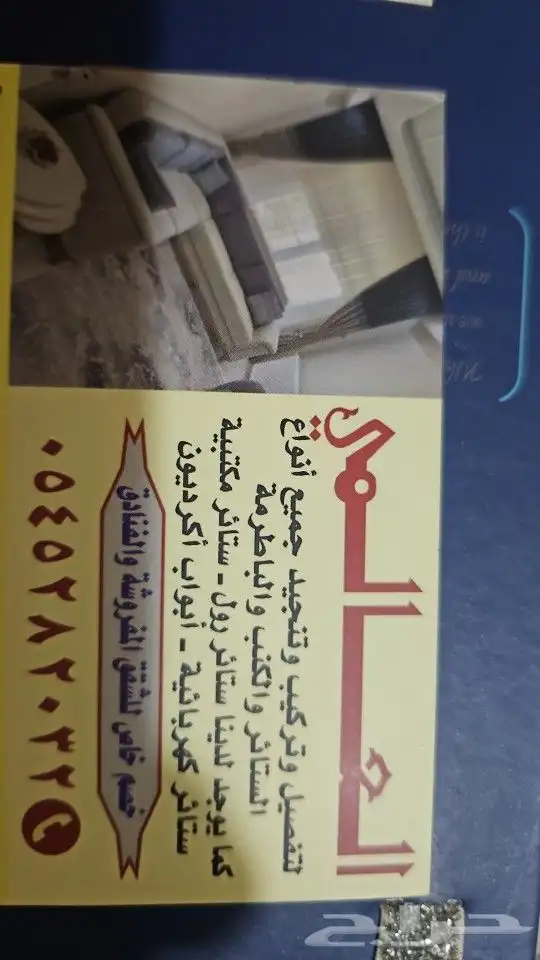 العالمي
لتفصيل وتركيب وتنجيد جميع أنواع
الستائر والكنب والباطرمة
كما يوجد لدينا ستائر رول - ستائر مكتبية
ستائر كهربائية - أبواب أكرديون
خصم خاص للشقق المفروشة والفنادق
٠٥٤٥٢٨٢٠٣٢
حراج